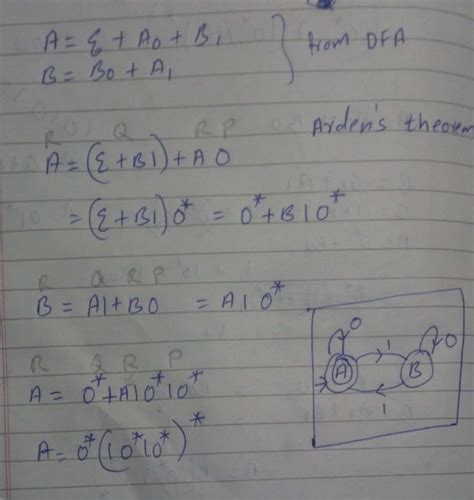 A = ε + A0 + B1
B = B0 + A1
from DFA
Arden's theorem
R Q R P
A = (ε + B1) + A0
= (ε + B1)0* = 0* + B10*
R Q R P
B = A1 + B0 = A10*
R Q R P
A = 0* + A10*10*
A = 0*(10*10*)*
0 1 0
A B
1